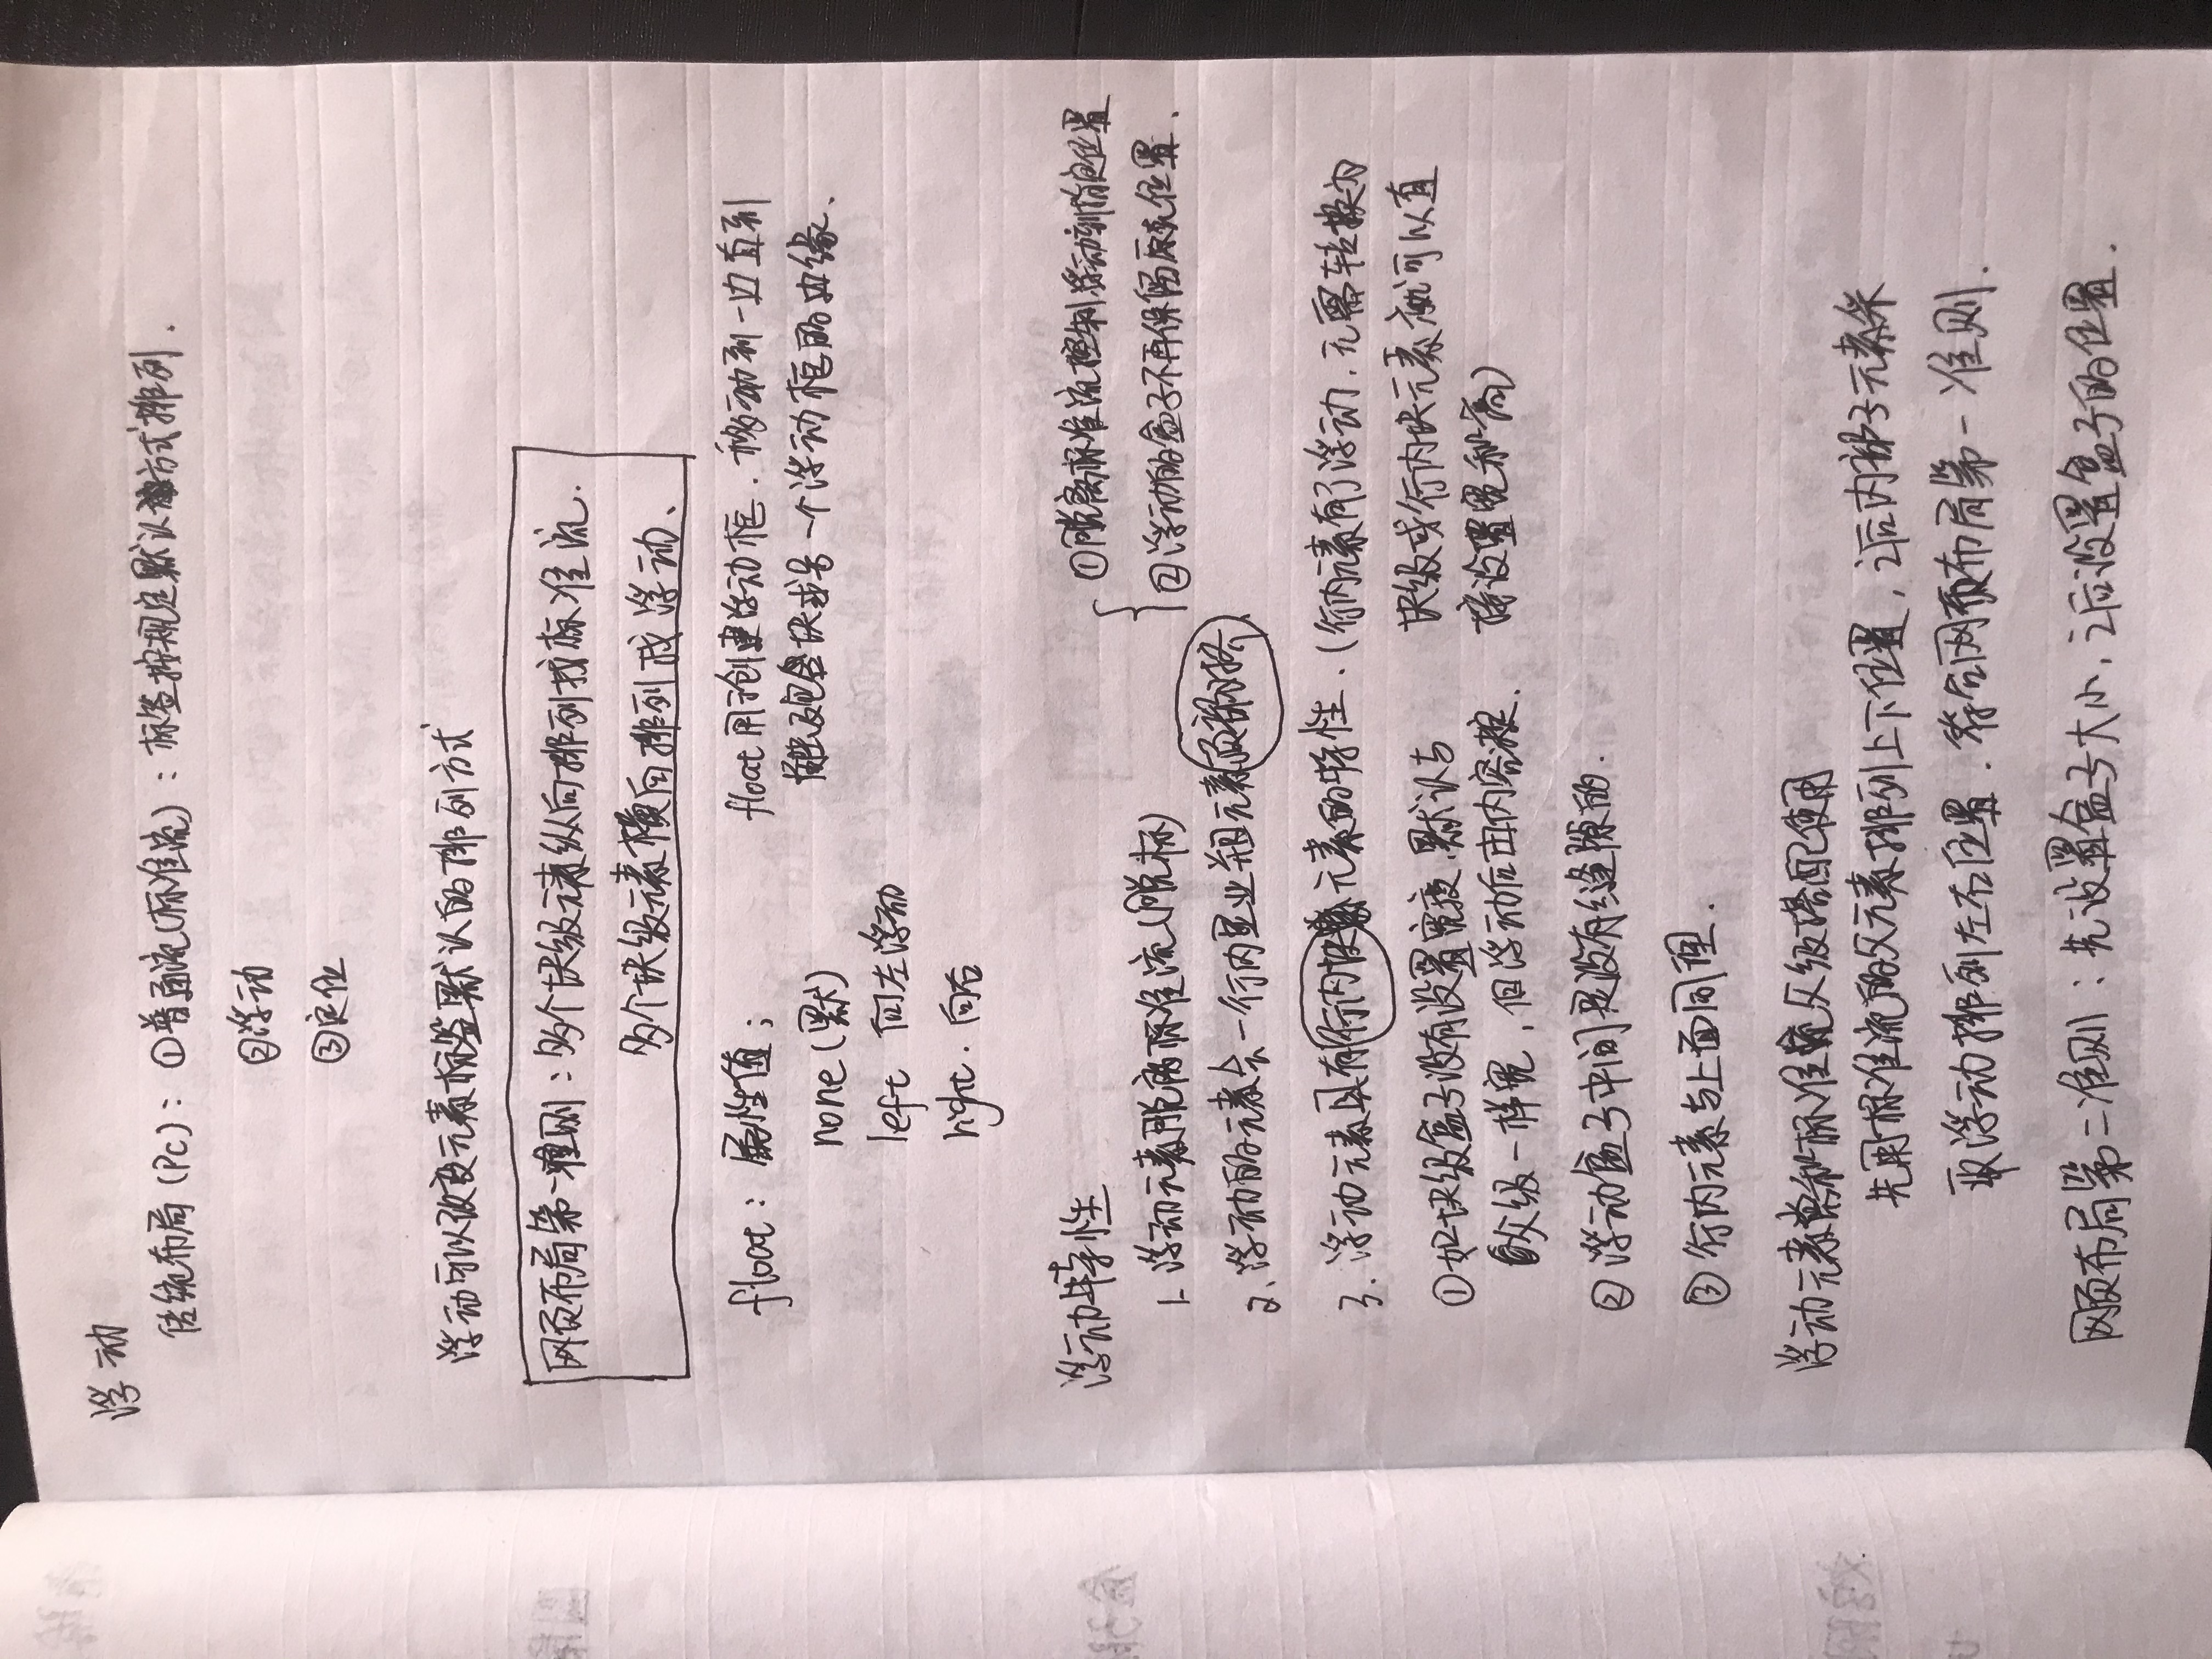 浮动
传统布局(PC)：①普通流(标准流)：标签按规定默认方式排列.
②浮动
③定位
浮动可以改变元素标签默认的排列方式
网页布局第一准则：多个块级元素纵向排列找标准流.
多个块级元素横向排列找浮动、
float：属性值；
none(默)
left 向左浮动
right. 向右
float用于创建浮动框.移动到一边直到
触及包含块或另一个浮动框的边缘、
浮动特性
1.浮动元素脱离标准流(脱标)
①脱离标准流控制浮动到指定位置
②浮动的盒子不再保留原先位置.
2、浮动的元素会一行内显示并且元素顶部对齐
3.浮动元素具有行内块元素的特性.(行内元素有了浮动,无需转换为
块级或行内块元素就可以直
接设置宽和高)
①如块级盒子没有设置宽度,默认与
父级一样宽,但浮动后由内容决定.
②浮动盒子中间是没有缝隙的.
③行内元素与上面同理.
浮动元素常和标准流父级搭配使用
先用标准流的父元素排列上下位置,之后内部子元素采
取浮动排列左右位置.符合网页布局第一准则.
网页布局第二准则：先设置盒子大小,之后设置盒子的位置.